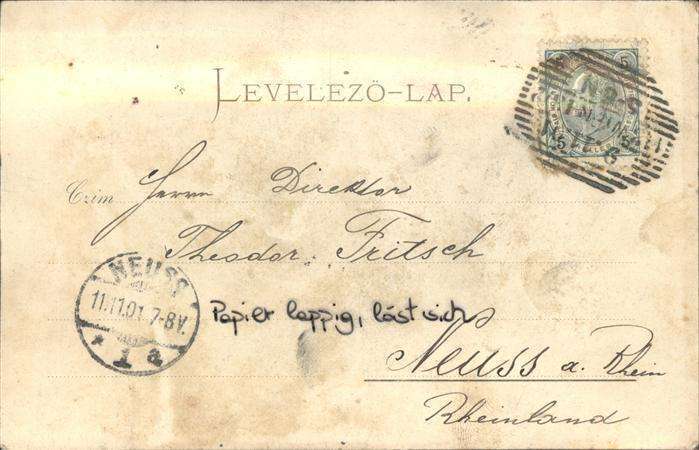 LEVELEZŐ-LAP.
5 5
Czim
Herrn Direktor
Theodor Fritsch
NEUSS
11.11.01 7-8V.
* 1 a
Papier lappig, löst sich
Neuss a. Rhein
Rheinland